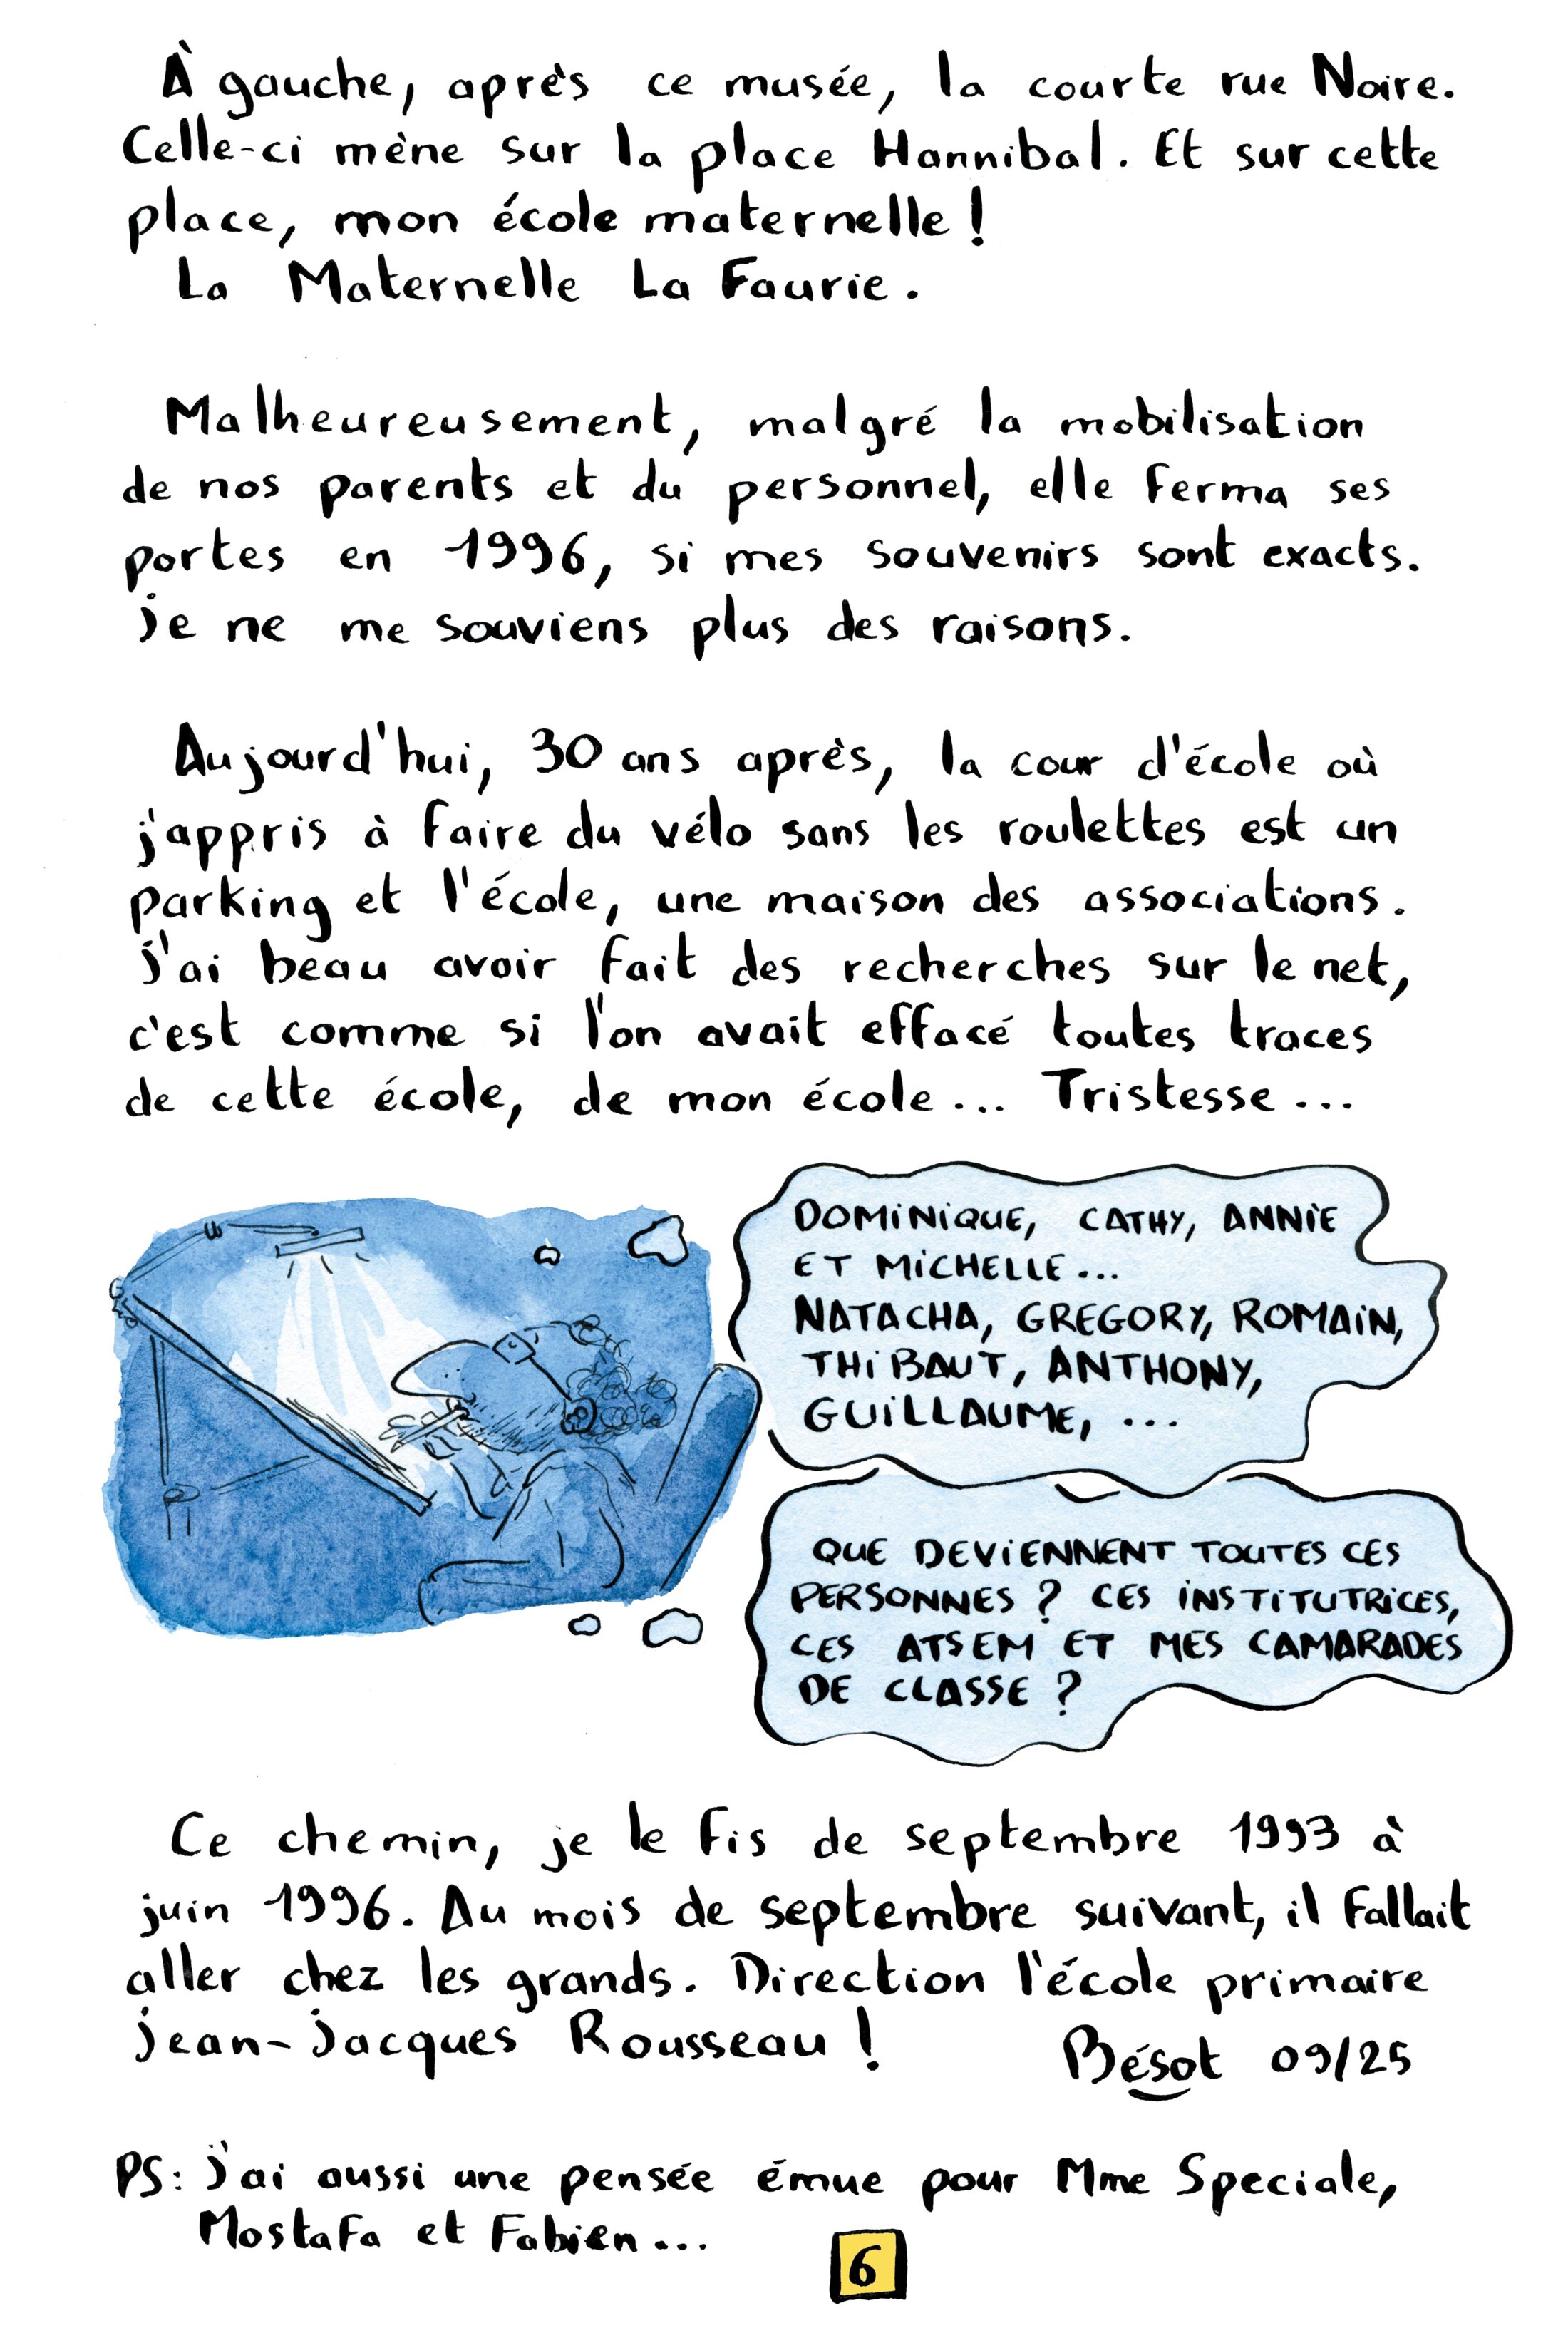 À gauche, après ce musée, la courte rue Noire.
Celle-ci mène sur la place Hannibal. Et sur cette
place, mon école maternelle !
La Maternelle La Faurie.
Malheureusement, malgré la mobilisation
de nos parents et du personnel, elle ferma ses
portes en 1996, si mes souvenirs sont exacts.
je ne me souviens plus des raisons.
Aujourd'hui, 30 ans après, la cour d'école où
j'appris à faire du vélo sans les roulettes est un
parking et l'école, une maison des associations.
J'ai beau avoir fait des recherches sur le net,
c'est comme si l'on avait effacé toutes traces
de cette école, de mon école... Tristesse...
DOMINIQUE, CATHY, ANNIE
ET MICHELLE...
NATACHA, GREGORY, ROMAIN,
THIBAUT, ANTHONY,
GUILLAUME, ...
QUE DEVIENNENT TOUTES CES
PERSONNES ? CES INSTITUTRICES,
CES ATSEM ET MES CAMARADES
DE CLASSE ?
Ce chemin, je le fis de septembre 1993 à
juin 1996. Au mois de septembre suivant, il fallait
aller chez les grands. Direction l'école primaire
Jean-Jacques Rousseau !
Bésot 09/25
PS: J'ai aussi une pensée émue pour Mme Speciale,
Mostafa et Fabien...
6